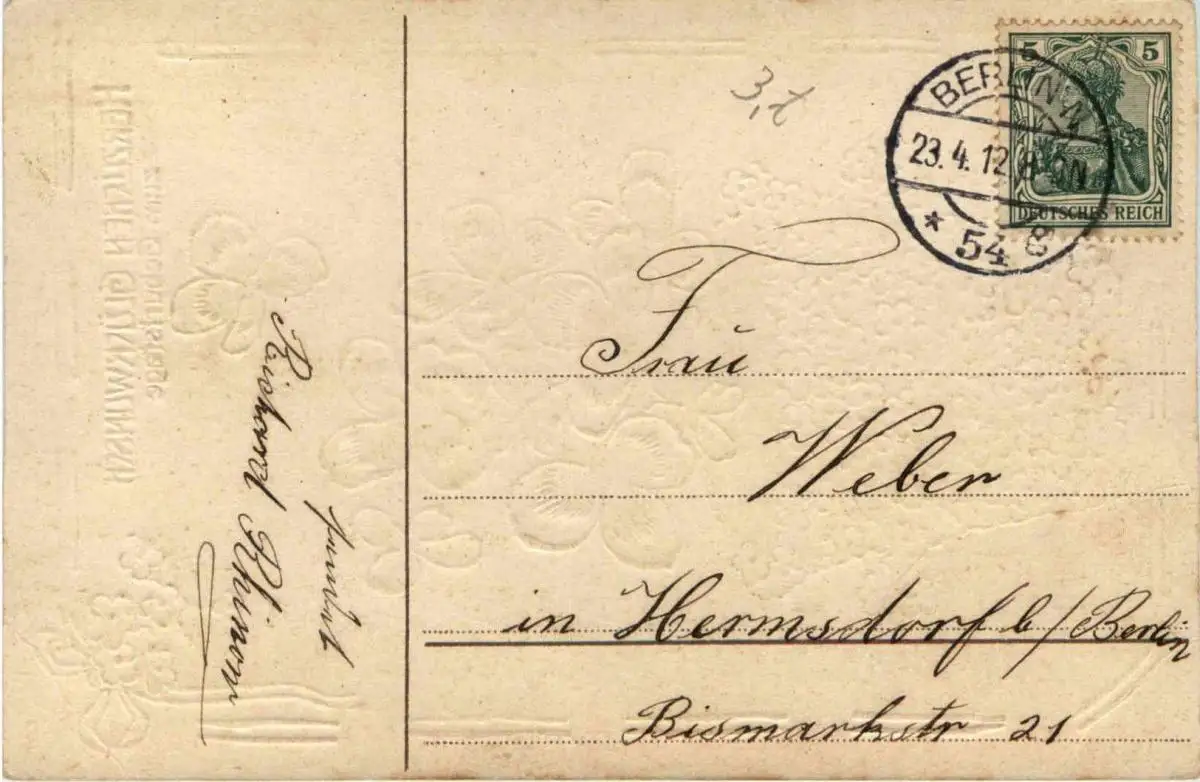 3,t
5 5
DEUTSCHES REICH
BERLIN N.
23.4.12 8-9N
* 54 g
Frau
Weber
in Hermsdorf b/Berlin
Bismarkstr 21
HERZLICHEN GLÜCKWUNSCH
ZUM GEBURTSTAGE